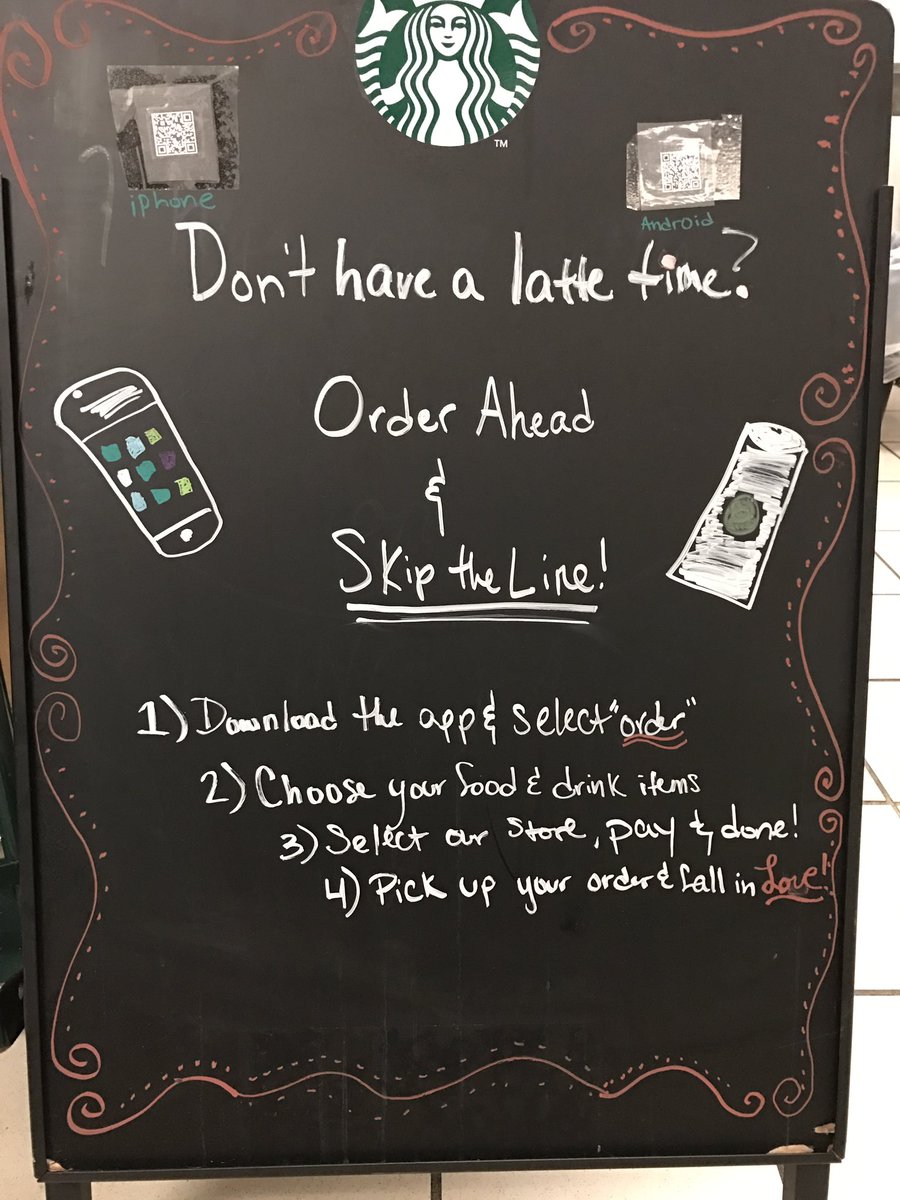 TM
iphone
Android
Don't have a latte time?
Order Ahead
&
Skip the Line!
1) Download the app & select "order"
2) Choose your food & drink items
3) Select our store, pay & done!
4) Pick up your order & fall in Love!